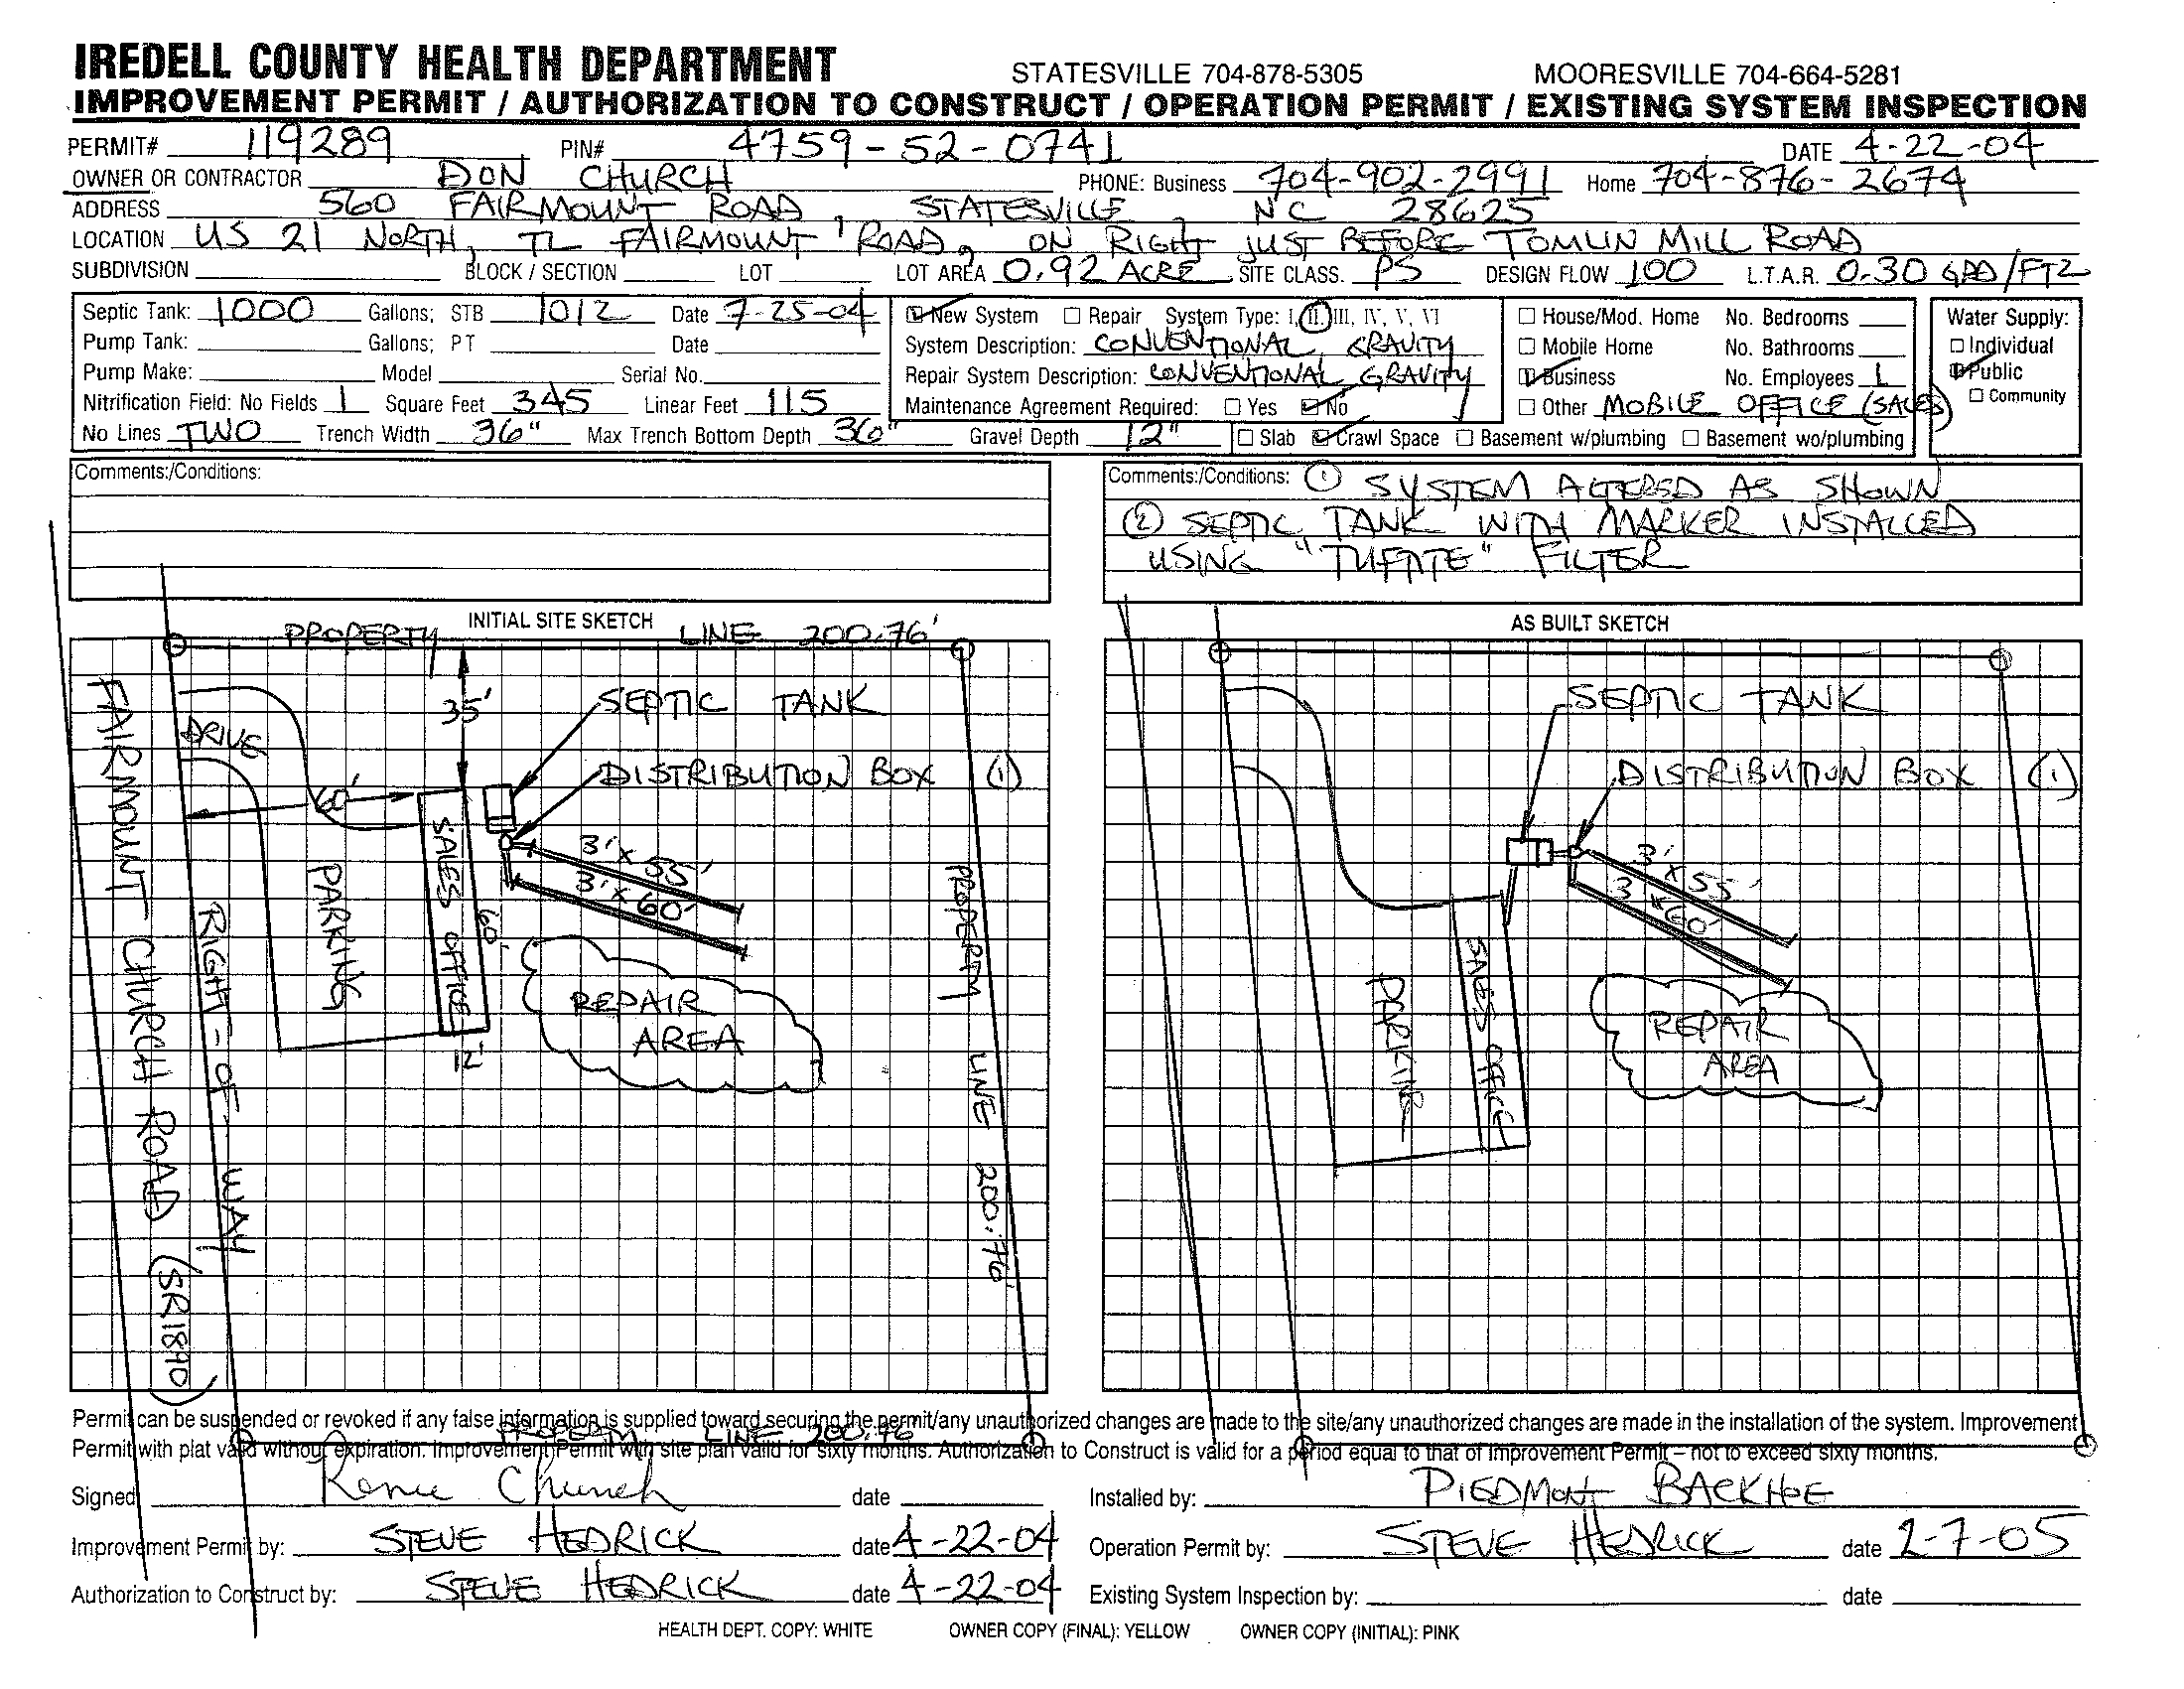 IREDELL COUNTY HEALTH DEPARTMENT STATESVILLE 704-878-5305 MOORESVILLE 704-664-5281
IMPROVEMENT PERMIT / AUTHORIZATION TO CONSTRUCT / OPERATION PERMIT / EXISTING SYSTEM INSPECTION
PERMIT# 119289 PIN# 4759-52-0741 DATE 4-22-04
OWNER OR CONTRACTOR DON CHURCH PHONE: Business 704-902-2991 Home 704-876-2674
ADDRESS 560 FAIRMOUNT ROAD, STATESVILLE, NC 28625
LOCATION US 21 NORTH, TL FAIRMOUNT ROAD, ON RIGHT JUST BEFORE TOMLIN MILL ROAD
SUBDIVISION BLOCK / SECTION LOT LOT AREA 0.92 ACRE SITE CLASS. PS DESIGN FLOW 100 L.T.A.R. 0.30 GPD/FT2
Septic Tank: 1000 Gallons; STB 1012 Date 7-25-04 New System Repair System Type: I, II, III, IV, V, VI House/Mod. Home No. Bedrooms Water Supply:
Pump Tank: Gallons; PT Date System Description: CONVENTIONAL GRAVITY Mobile Home No. Bathrooms Individual
Pump Make: Model Serial No. Repair System Description: CONVENTIONAL GRAVITY Business No. Employees 1 Public
Nitrification Field: No Fields 1 Square Feet 345 Linear Feet 115 Maintenance Agreement Required: Yes No Other MOBILE OFFICE (SALES) Community
No Lines TWO Trench Width 36" Max Trench Bottom Depth 36" Gravel Depth 12" Slab Crawl Space Basement w/plumbing Basement wo/plumbing
Comments:/Conditions:
Comments:/Conditions: (1) SYSTEM ALTERED AS SHOWN
(2) SEPTIC TANK WITH MARKER INSTALLED
USING "TUFTITE" FILTER
INITIAL SITE SKETCH
PROPERTY LINE 200.76'
35'
SEPTIC TANK
DRIVE
DISTRIBUTION BOX (1)
60'
3' x 55'
3' x 60'
SALES OFFICE
60'
12'
PARKING
REPAIR
AREA
FAIRMOUNT CHURCH ROAD (SR1890)
RIGHT-OF-WAY
PROPERTY LINE 200.76'
PROPERTY LINE 200.76
AS BUILT SKETCH
SEPTIC TANK
DISTRIBUTION BOX (1)
3' x 55'
3' x 60'
SALES OFFICE
PARKING
REPAIR
AREA
Permit can be suspended or revoked if any false information is supplied toward securing the permit/any unauthorized changes are made to the site/any unauthorized changes are made in the installation of the system. Improvement
Permit with plat valid without expiration. Improvement Permit with site plan valid for sixty months. Authorization to Construct is valid for a period equal to that of Improvement Permit – not to exceed sixty months.
Signed Renee Church date Installed by: PIEDMONT BACKHOE
Improvement Permit by: STEVE HEDRICK date 4-22-04 Operation Permit by: STEVE HEDRICK date 2-7-05
Authorization to Construct by: STEVE HEDRICK date 4-22-04 Existing System Inspection by: date
HEALTH DEPT. COPY: WHITE OWNER COPY (FINAL): YELLOW OWNER COPY (INITIAL): PINK